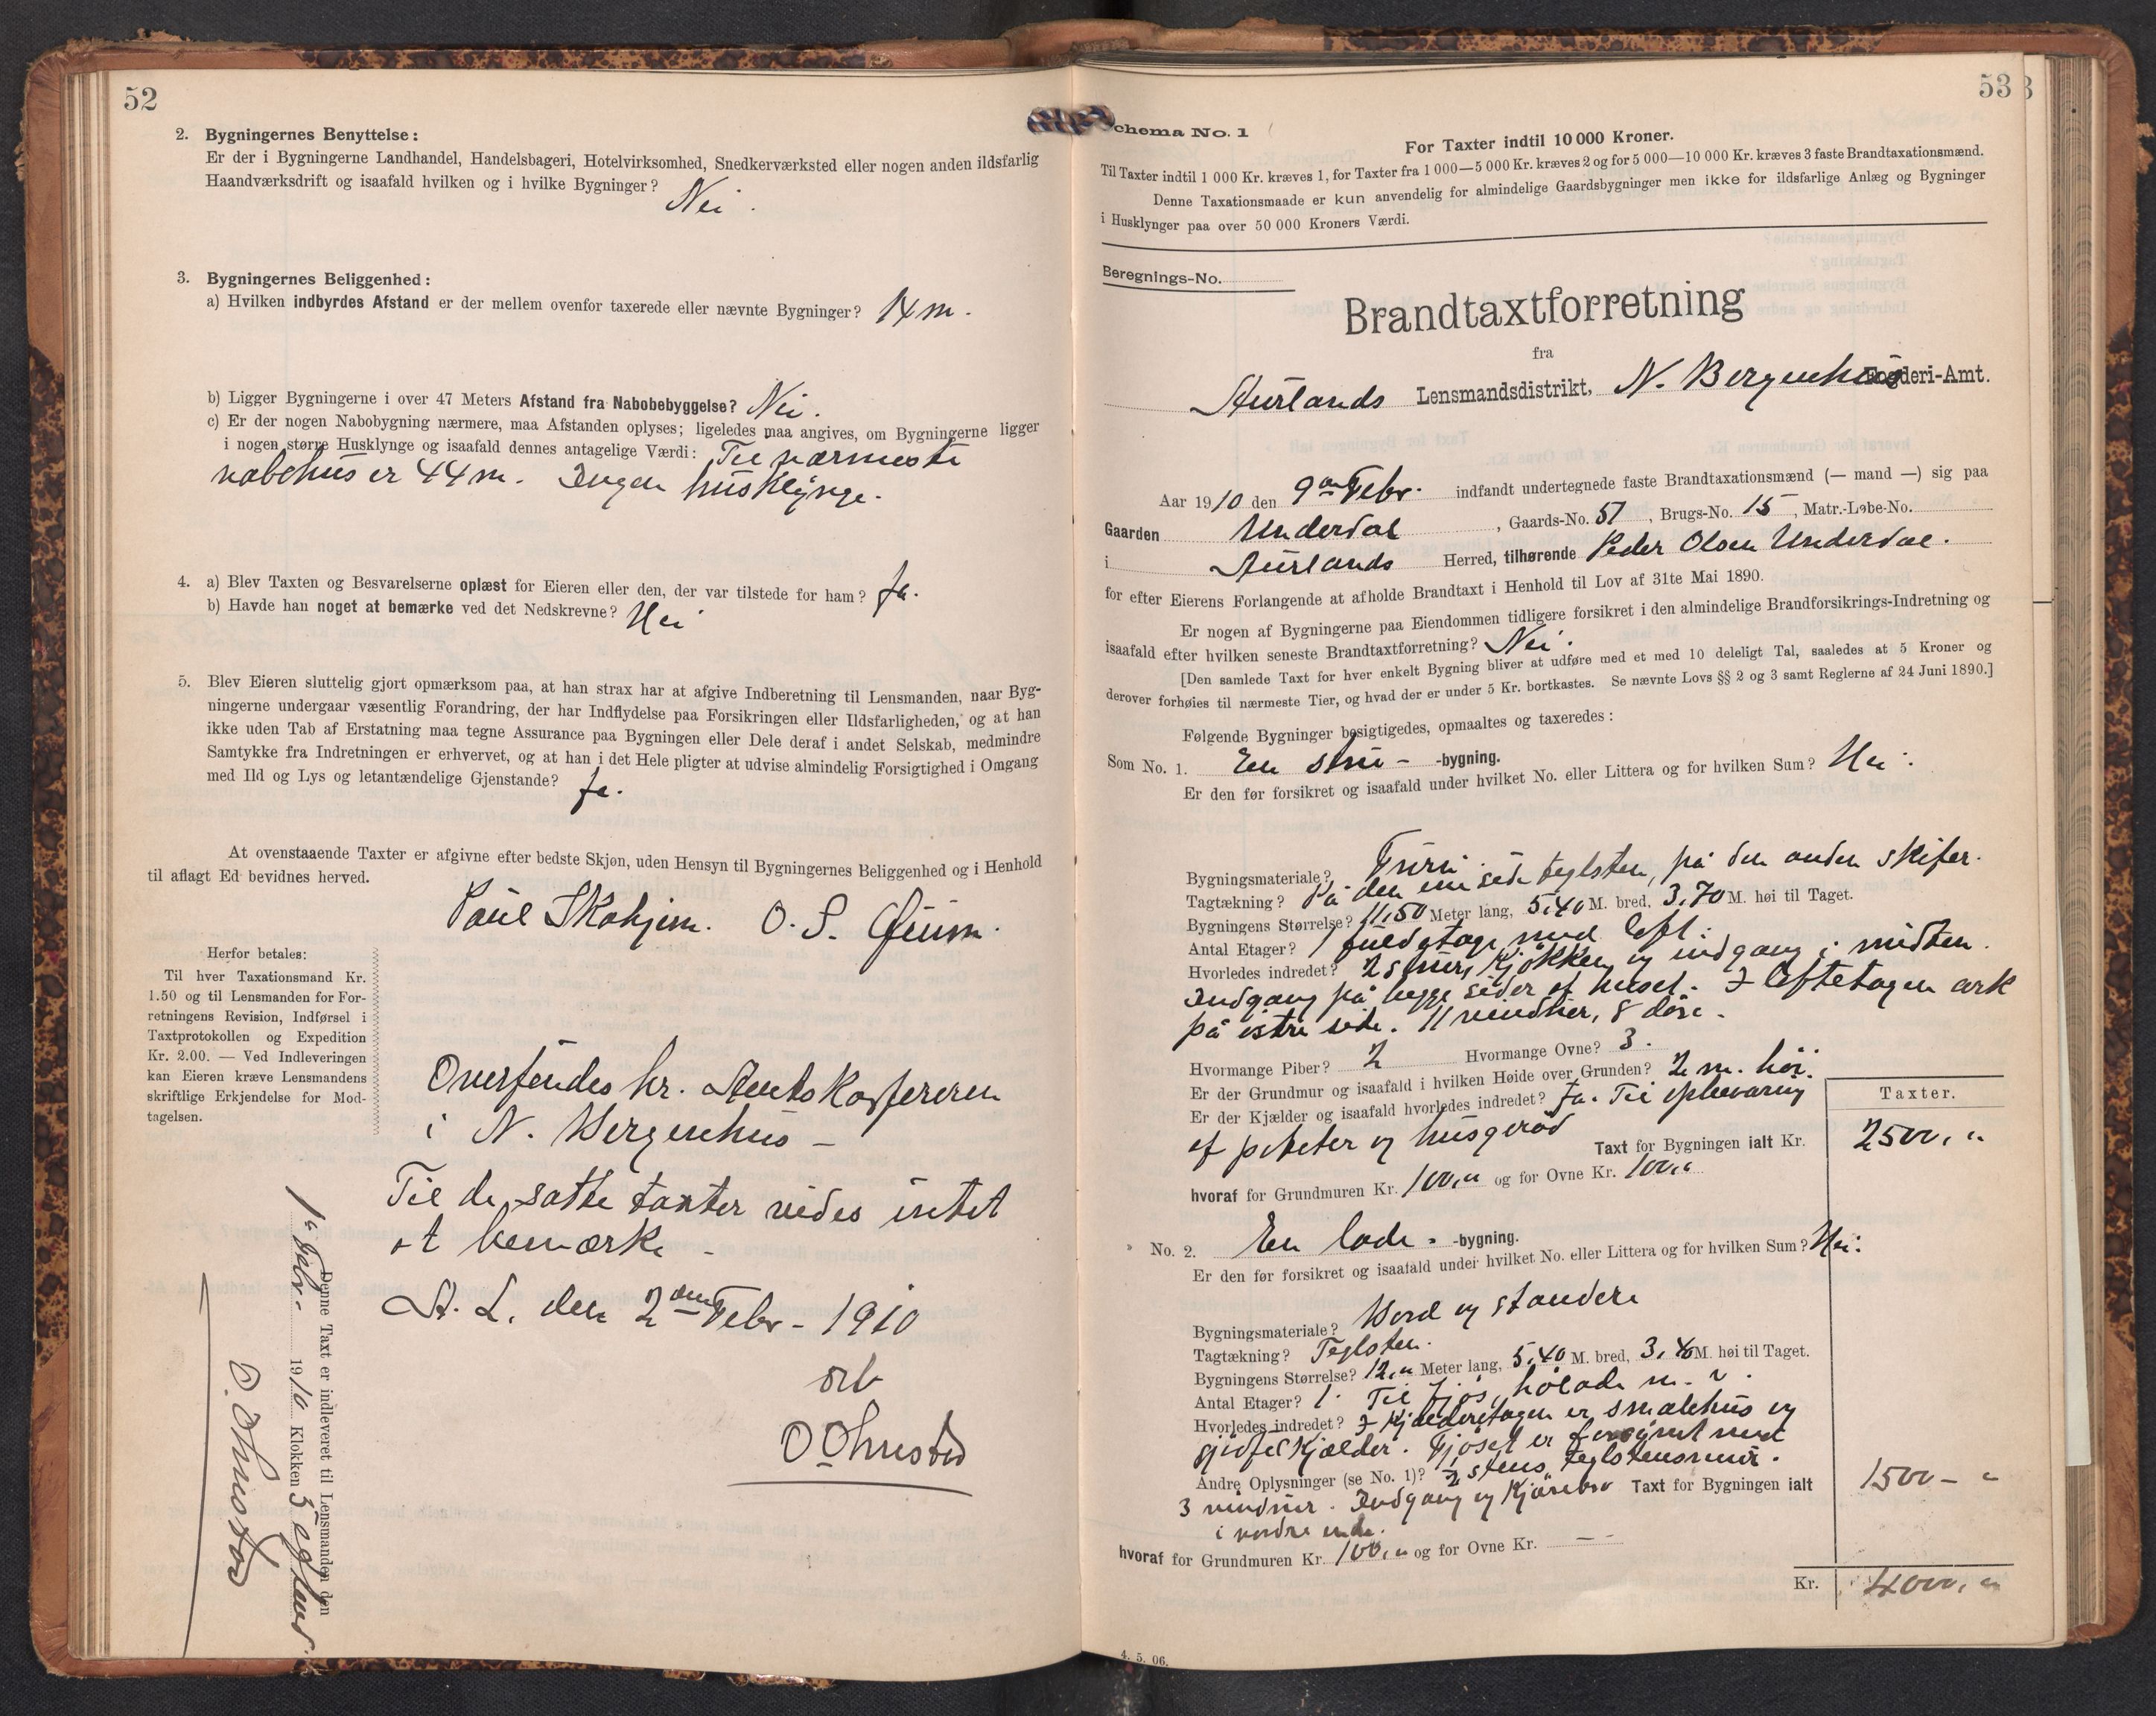 52
2. Bygningernes Benyttelse:
Er der i Bygningerne Landhandel, Handelsbageri, Hotelvirksomhed, Snedkerværksted eller nogen anden ildsfarlig
Haandværksdrift og isaafald hvilken og i hvilke Bygninger? Nei.
3. Bygningernes Beliggenhed:
a) Hvilken indbyrdes Afstand er der mellem ovenfor taxerede eller nævnte Bygninger? 14 m.
b) Ligger Bygningerne i over 47 Meters Afstand fra Nabobebyggelse? Nei.
c) Er der nogen Nabobygning nærmere, maa Afstanden oplyses; ligeledes maa angives, om Bygningerne ligger
i nogen større Husklynge og isaafald dennes antagelige Værdi: Til nærmeste
nabohus er 44 m. Ingen husklynge.
4. a) Blev Taxten og Besvarelserne oplæst for Eieren eller den, der var tilstede for ham? Ja.
b) Havde han noget at bemærke ved det Nedskrevne? Nei
5. Blev Eieren sluttelig gjort opmærksom paa, at han strax har at afgive Indberetning til Lensmanden, naar Byg-
ningerne undergaar væsentlig Forandring, der har Indflydelse paa Forsikringen eller Ildsfarligheden, og at han
ikke uden Tab af Erstatning maa tegne Assurance paa Bygningen eller Dele deraf i andet Selskab, medmindre
Samtykke fra Indretningen er erhvervet, og at han i det Hele pligter at udvise almindelig Forsigtighed i Omgang
med Ild og Lys og letantændelige Gjenstande? Ja.
At ovenstaaende Taxter er afgivne efter bedste Skjøn, uden Hensyn til Bygningernes Beliggenhed og i Henhold
til aflagt Ed bevidnes herved.
Paul Skahjem. O. S.
Herfor betales:
Til hver Taxationsmand Kr.
1.50 og til Lensmanden for For-
retningens Revision, Indførsel i
Taxtprotokollen og Expedition
Kr. 2.00. — Ved Indleveringen
kan Eieren kræve Lensmandens
skriftlige Erkjendelse for Mod-
tagelsen.
Oversendes hr. Amtskassereren
i N. Bergenhus –
Til de satte taxter vides intet
at bemærke –
A. L. den 2den Febr – 1910
O Ohnstad
Denne Taxt er indleveret til Lensmanden den
1ste Febr. 1910 Klokken 3 eftmd.
O. Ohnstad
53
Schema No. 1
For Taxter indtil 10 000 Kroner.
Til Taxter indtil 1 000 Kr. kræves 1, for Taxter fra 1 000—5 000 Kr. kræves 2 og for 5 000—10 000 Kr. kræves 3 faste Brandtaxationsmænd.
Denne Taxationsmaade er kun anvendelig for almindelige Gaardsbygninger men ikke for ildsfarlige Anlæg og Bygninger
i Husklynger paa over 50 000 Kroners Værdi.
Beregnings-No.
Brandtaxtforretning
fra
Aurlands Lensmandsdistrikt, N. Bergenhus Fogderi-Amt.
Aar 1910 den 9de Febr. indfandt undertegnede faste Brandtaxationsmænd (— mand —) sig paa
Gaarden Underdal, Gaards-No. 51, Brugs-No. 15, Matr.-Løbe-No.
i Aurlands Herred, tilhørende Peder Olsen Underdal.
for efter Eierens Forlangende at afholde Brandtaxt i Henhold til Lov af 31te Mai 1890.
Er nogen af Bygningerne paa Eiendommen tidligere forsikret i den almindelige Brandforsikrings-Indretning og
isaafald efter hvilken seneste Brandtaxtforretning? Nei.
[Den samlede Taxt for hver enkelt Bygning bliver at udføre med et med 10 deleligt Tal, saaledes at 5 Kroner og
derover forhøies til nærmeste Tier, og hvad der er under 5 Kr. bortkastes. Se nævnte Lovs §§ 2 og 3 samt Reglerne af 24 Juni 1890.]
Følgende Bygninger besigtigedes, opmaaltes og taxeredes:
Som No. 1. En stue- -bygning.
Er den før forsikret og isaafald under hvilket No. eller Littera og for hvilken Sum? Nei.
Bygningsmateriale? Furu.
Tagtækning? På den ene side teglsten, på den anden skifer.
Bygningens Størrelse? 11,50 Meter lang, 5,40 M. bred, 3,70 M. høi til Taget.
Antal Etager? 1 fuld etage med loft.
Hvorledes indredet? 2 stuer, kjøkken og indgang i midten.
Indgang på begge sider af huset. I loftetagen ark
på østre side. 11 vinduer, 8 døre.
Hvormange Piber? 2 Hvormange Ovne? 3.
Er der Grundmur og isaafald i hvilken Høide over Grunden? 2 m. høi.
Er der Kjælder og isaafald hvorledes indredet? Ja. Til opbevaring
af poteter og husgeråd
Taxt for Bygningen ialt Kr.
Taxter.
2500,"
hvoraf for Grundmuren Kr. 100," og for Ovne Kr. 100,"
No. 2. En lade- -bygning.
Er den før forsikret og isaafald under hvilket No. eller Littera og for hvilken Sum? Nei.
Bygningsmateriale? Bord og standere
Tagtækning? Teglsten.
Bygningens Størrelse? 12," Meter lang, 5,40 M. bred, 3,40 M. høi til Taget.
Antal Etager? 1. Til fjøs, hølade m. v.
Hvorledes indredet? I kjælderetagen er smalehus og
gjødselkjælder. Fjøset er forsynet med
Andre Oplysninger (se No. 1)? ½ stens teglstensmur.
3 vinduer. Indgang og kjørebro
i nordre ende.
Taxt for Bygningen ialt
1500 – "
hvoraf for Grundmuren Kr. 100," og for Ovne Kr. — -
Kr. 4000, "
4. 5. 06.